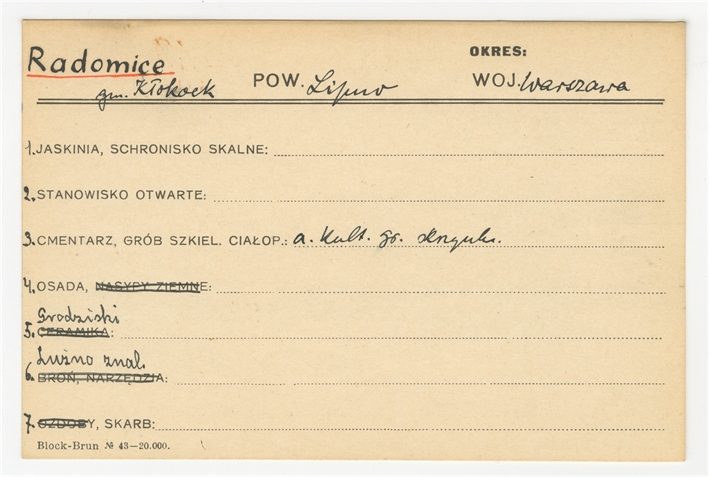 Radomice OKRES:
gm. Kłokock POW. Lipno WOJ. Warszawa
1. JASKINIA, SCHRONISKO SKALNE:
2. STANOWISKO OTWARTE:
3. CMENTARZ, GRÓB SZKIEL. CIAŁOP.: a. Kult. gr.
4. OSADA, NASYPY ZIEMNE:
Grodziski
5. CERAMIKA:
Luźno znal.
6. BROŃ, NARZĘDZIA:
7. OZDOBY, SKARB:
Block-Brun № 43—20.000.